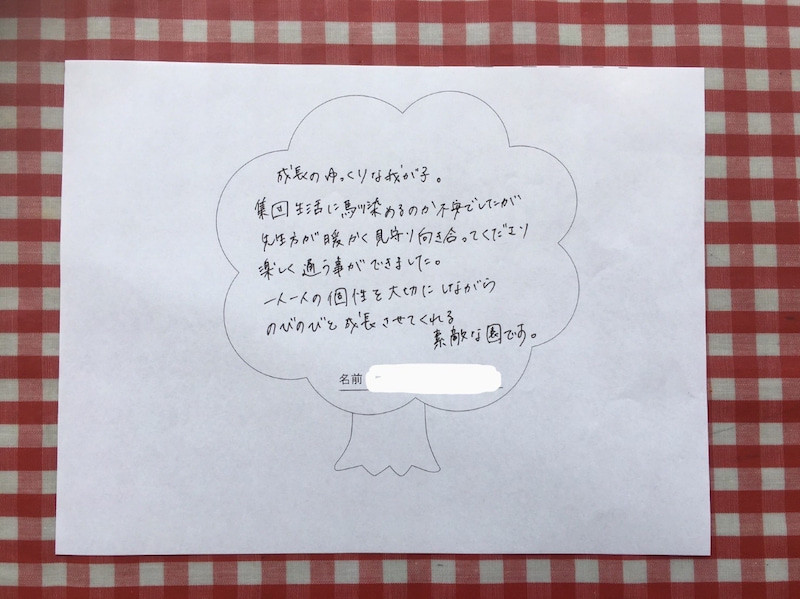 成長のゆっくりな我が子。
集団生活に馴染めるのか不安でしたが
先生方が暖かく見守り向き合ってくださり
楽しく通う事ができました。
一人一人の個性を大切にしながら
のびのびと成長させてくれる
素敵な園です。
名前